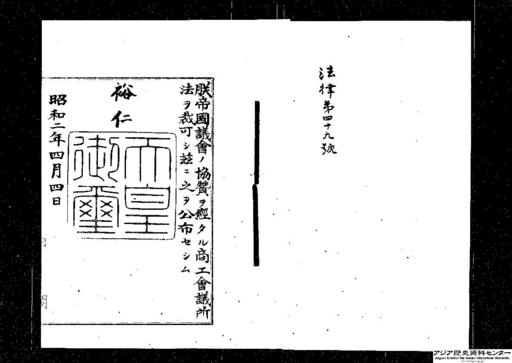 法律第四十九號
朕帝國議會ノ協贊ヲ經タル商工會議所
法ヲ裁可シ茲ニ之ヲ公布セシム
裕仁
天皇御璽
昭和二年四月四日
アジア歴史資料センター
Japan Center for Asian Historical Records